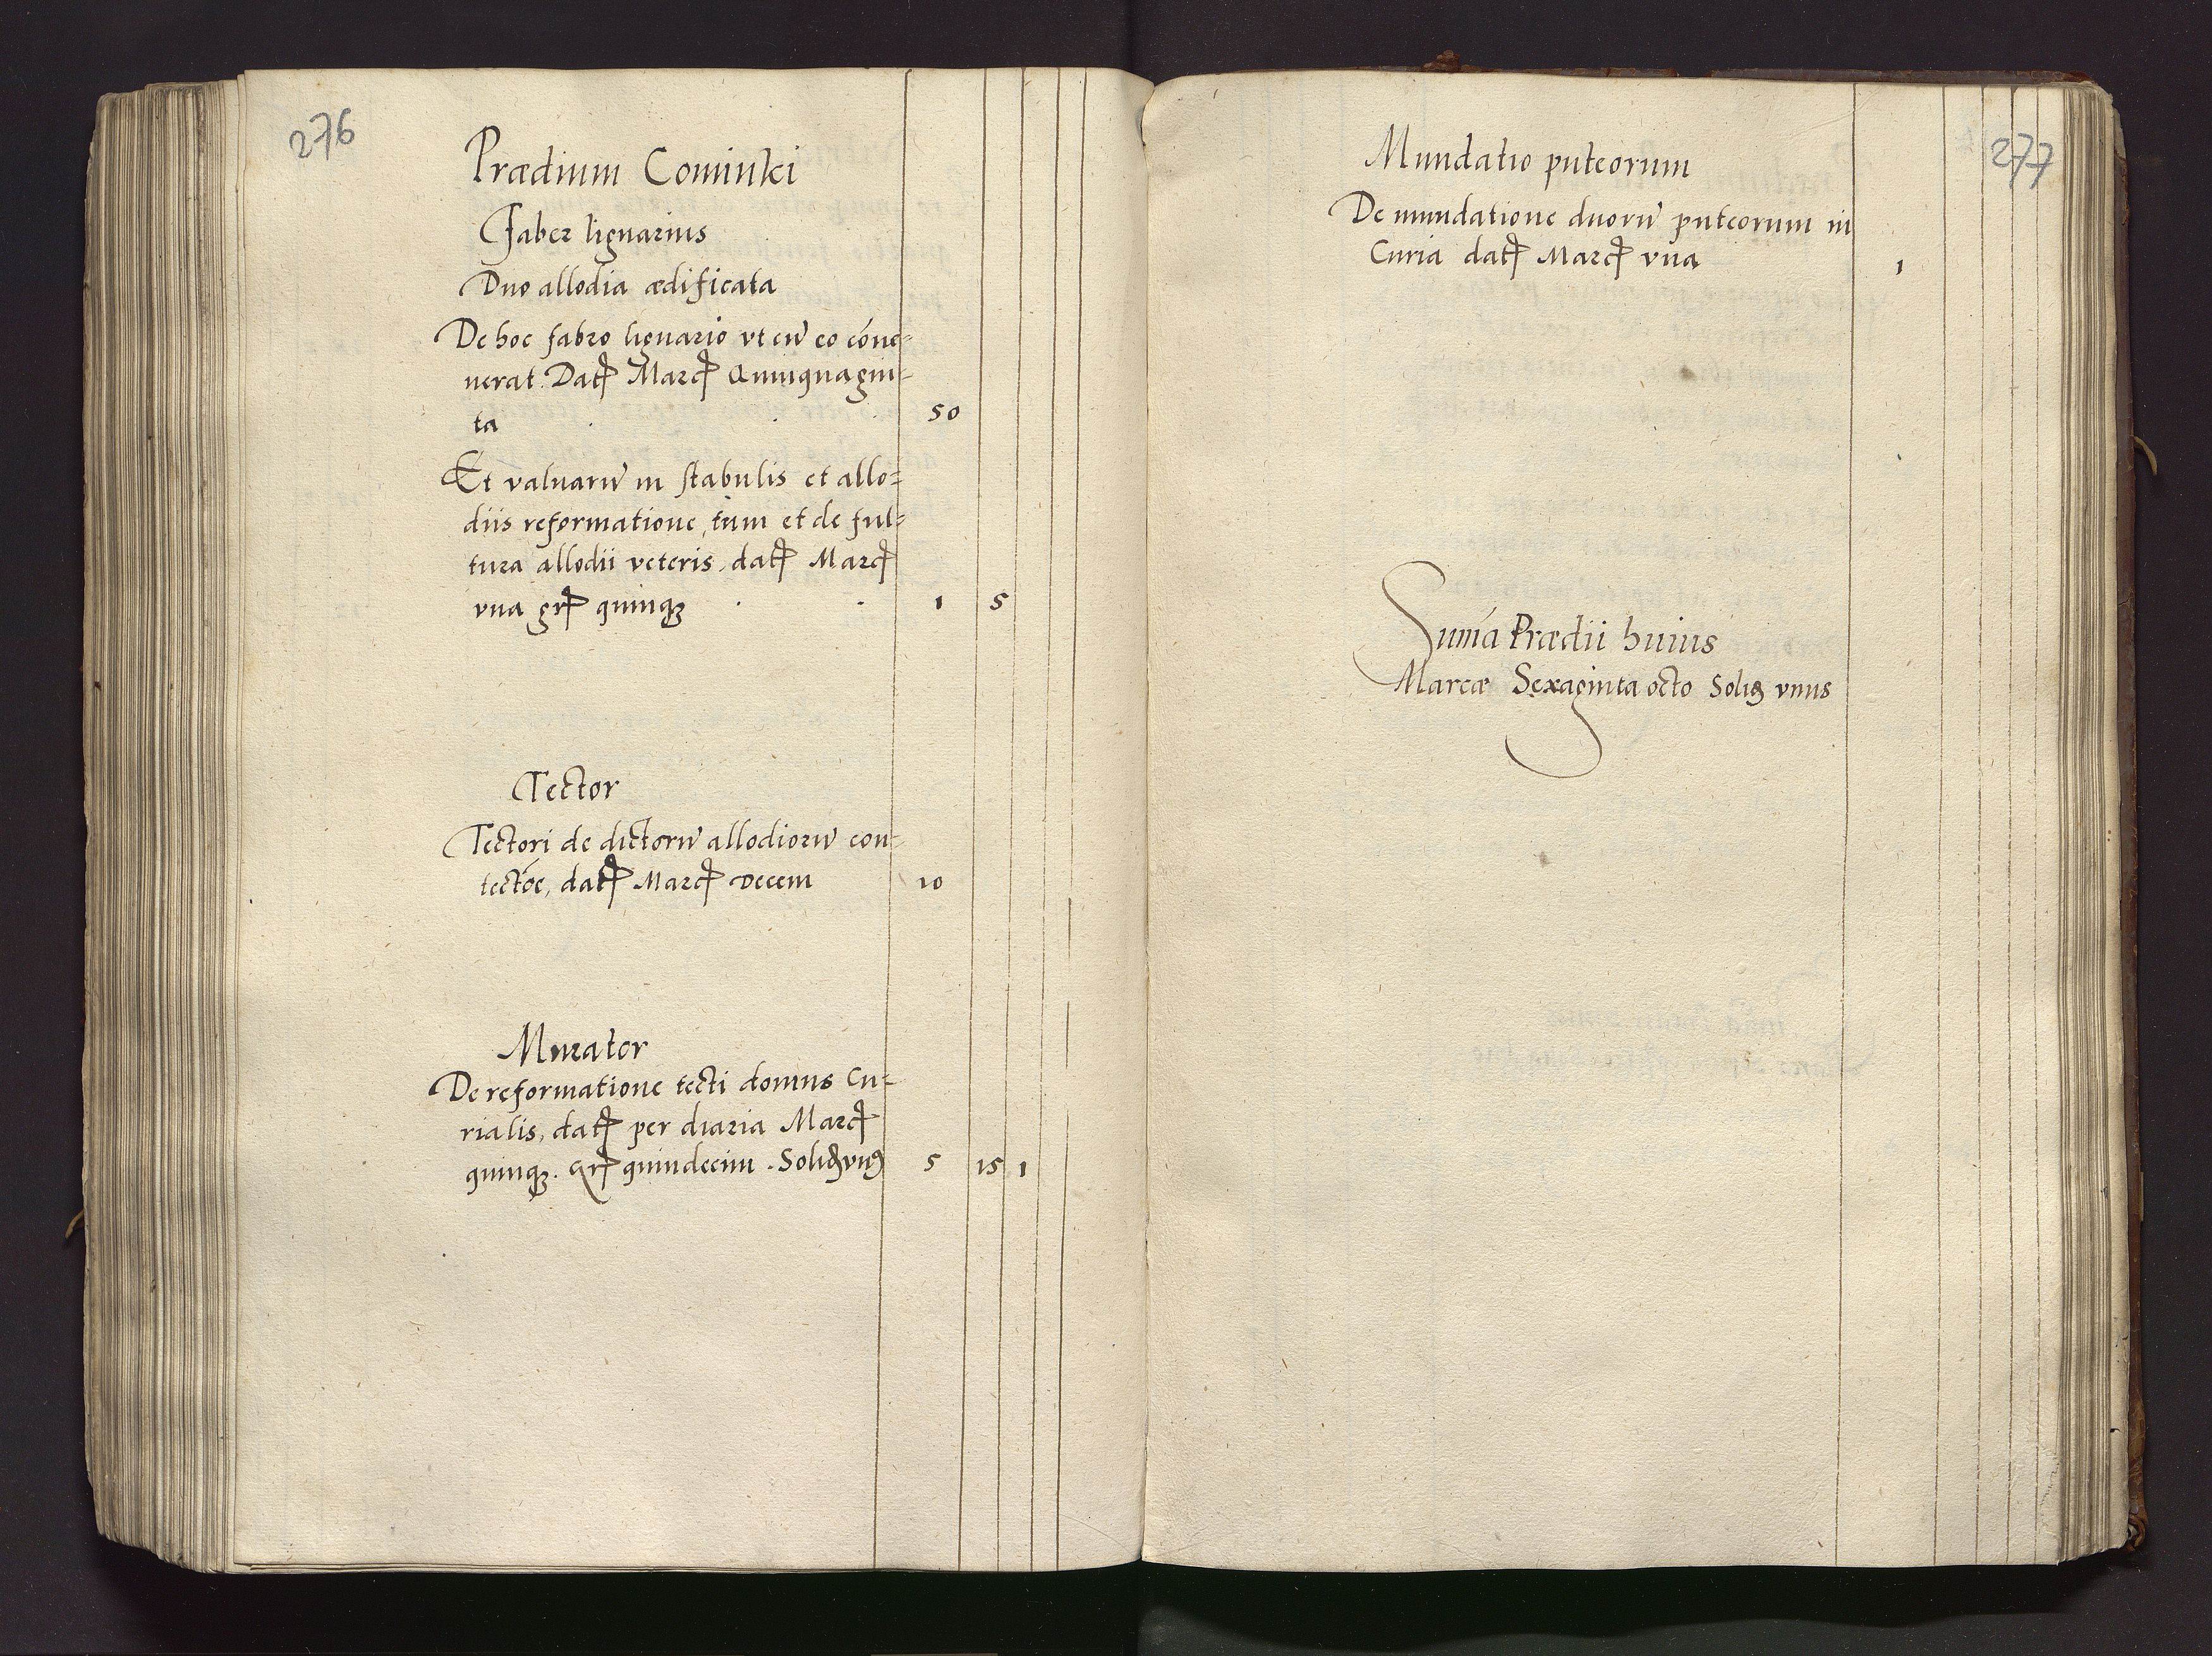 276
Prædium Cominki
Faber lignarius
Duo allodia ædificata
De hoc fabro lignario vt cū eo cōue=
nerat. Datꝭ Marcꝭ Quinquagin=
ta 50
Et valuarū in stabulis et allo=
diis reformatione, tum et de ful=
tura allodii veteris, datꝭ Marcꝭ
vna grꝭ quinqꝫ 1 5
Tector
Tectori de dictorū allodiorū con=
tectōe, datꝭ Marcꝭ Decem 10
Murator
De reformatione tecti domus Cu=
rialis, datꝭ per diaria Marcꝭ
quinqꝫ. Grꝭ quindecim. Solidꝰ vnꝰ 5 15 1
277
Mundatio puteorum
De mundatione duorū puteorum in
Curia datꝭ Marcꝭ vna 1
Sum̄a Prædii huius
Marcæ Sexaginta octo Solidꝰ vnus